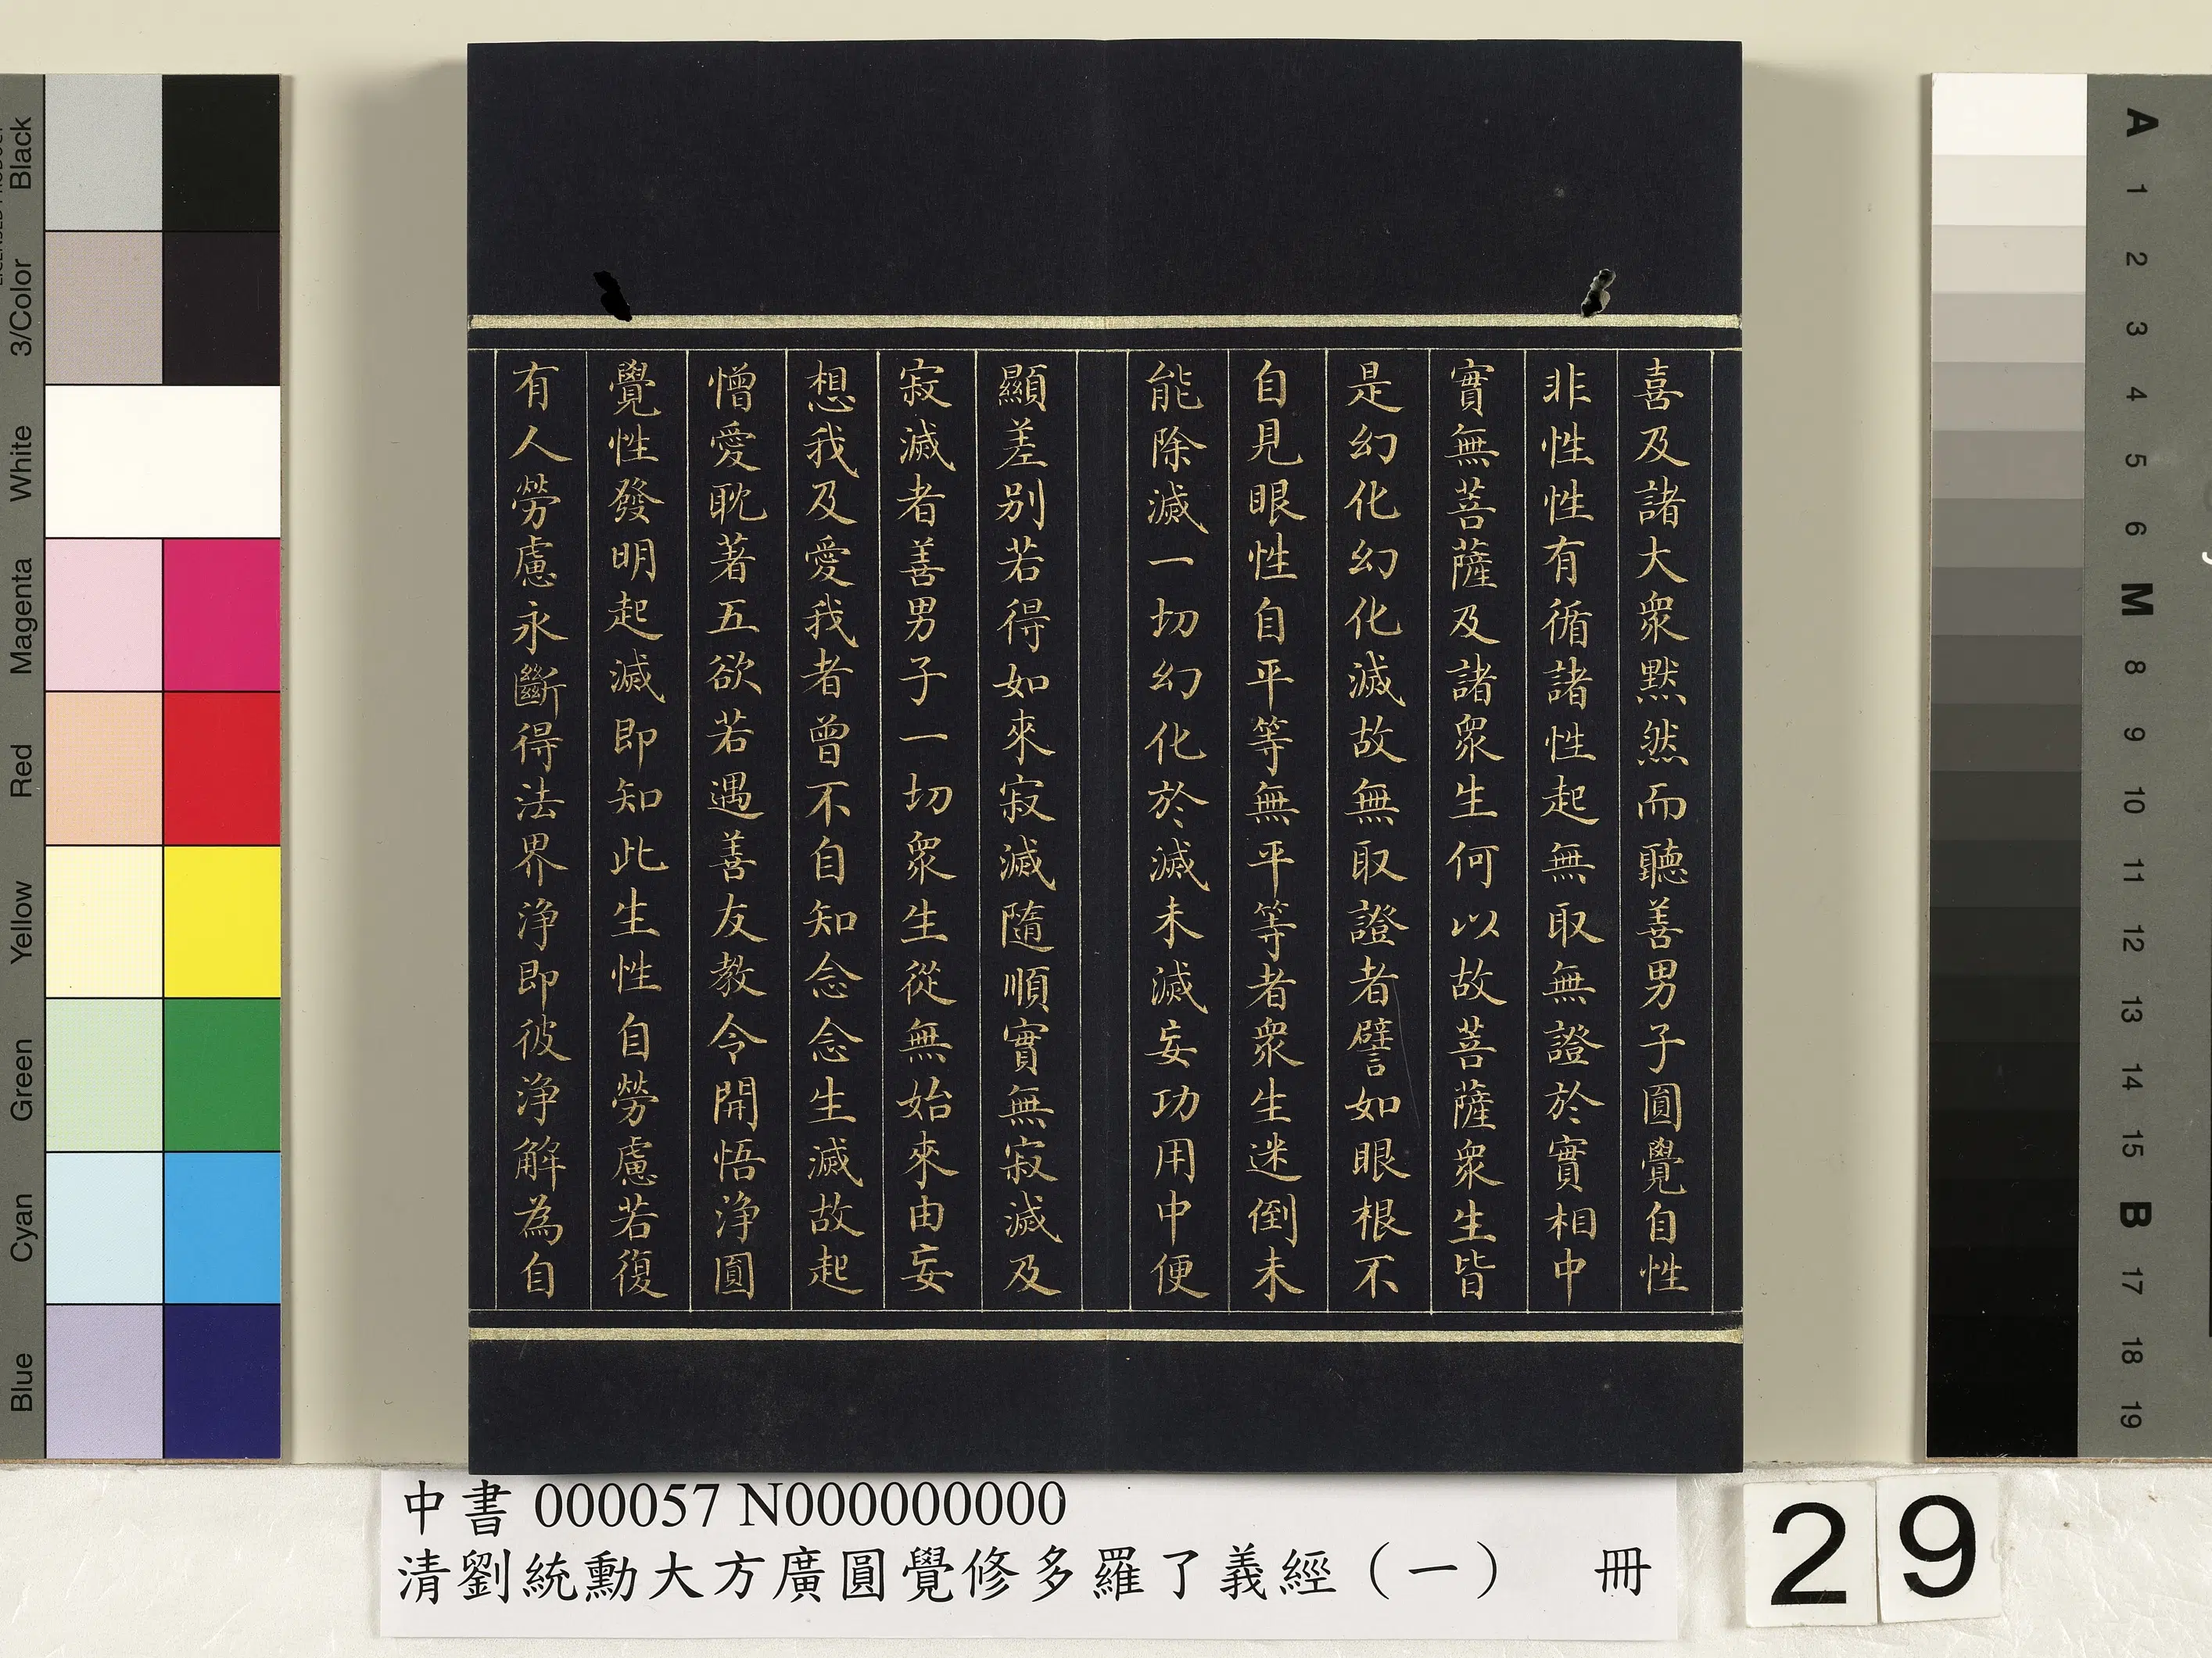 喜及諸大衆黙然而聽善男子圓覺自性
非性性有循諸性起無取無證於實相中
實無菩薩及諸衆生何以故菩薩衆生皆
是幻化幻化滅故無取證者譬如眼根不
自見眼性自平等無平等者衆生迷倒未
能除滅一切幻化於滅未滅妄功用中便
顯差別若得如來寂滅隨順實無寂滅及
寂滅者善男子一切衆生從無始來由妄
想我及愛我者曾不自知念念生滅故起
憎愛耽著五欲若遇善友教令開悟淨圓
覺性發明起滅即知此生性自勞慮若復
有人勞慮永斷得法界淨即彼淨解為自
中書 000057 N000000000
清劉統勳大方廣圓覺修多羅了義經（一） 冊
29
Black
3/Color
White
Magenta
Red
Yellow
Green
Cyan
Blue
A
1
2
3
4
5
6
M
8
9
10
11
12
13
14
15
B
17
18
19